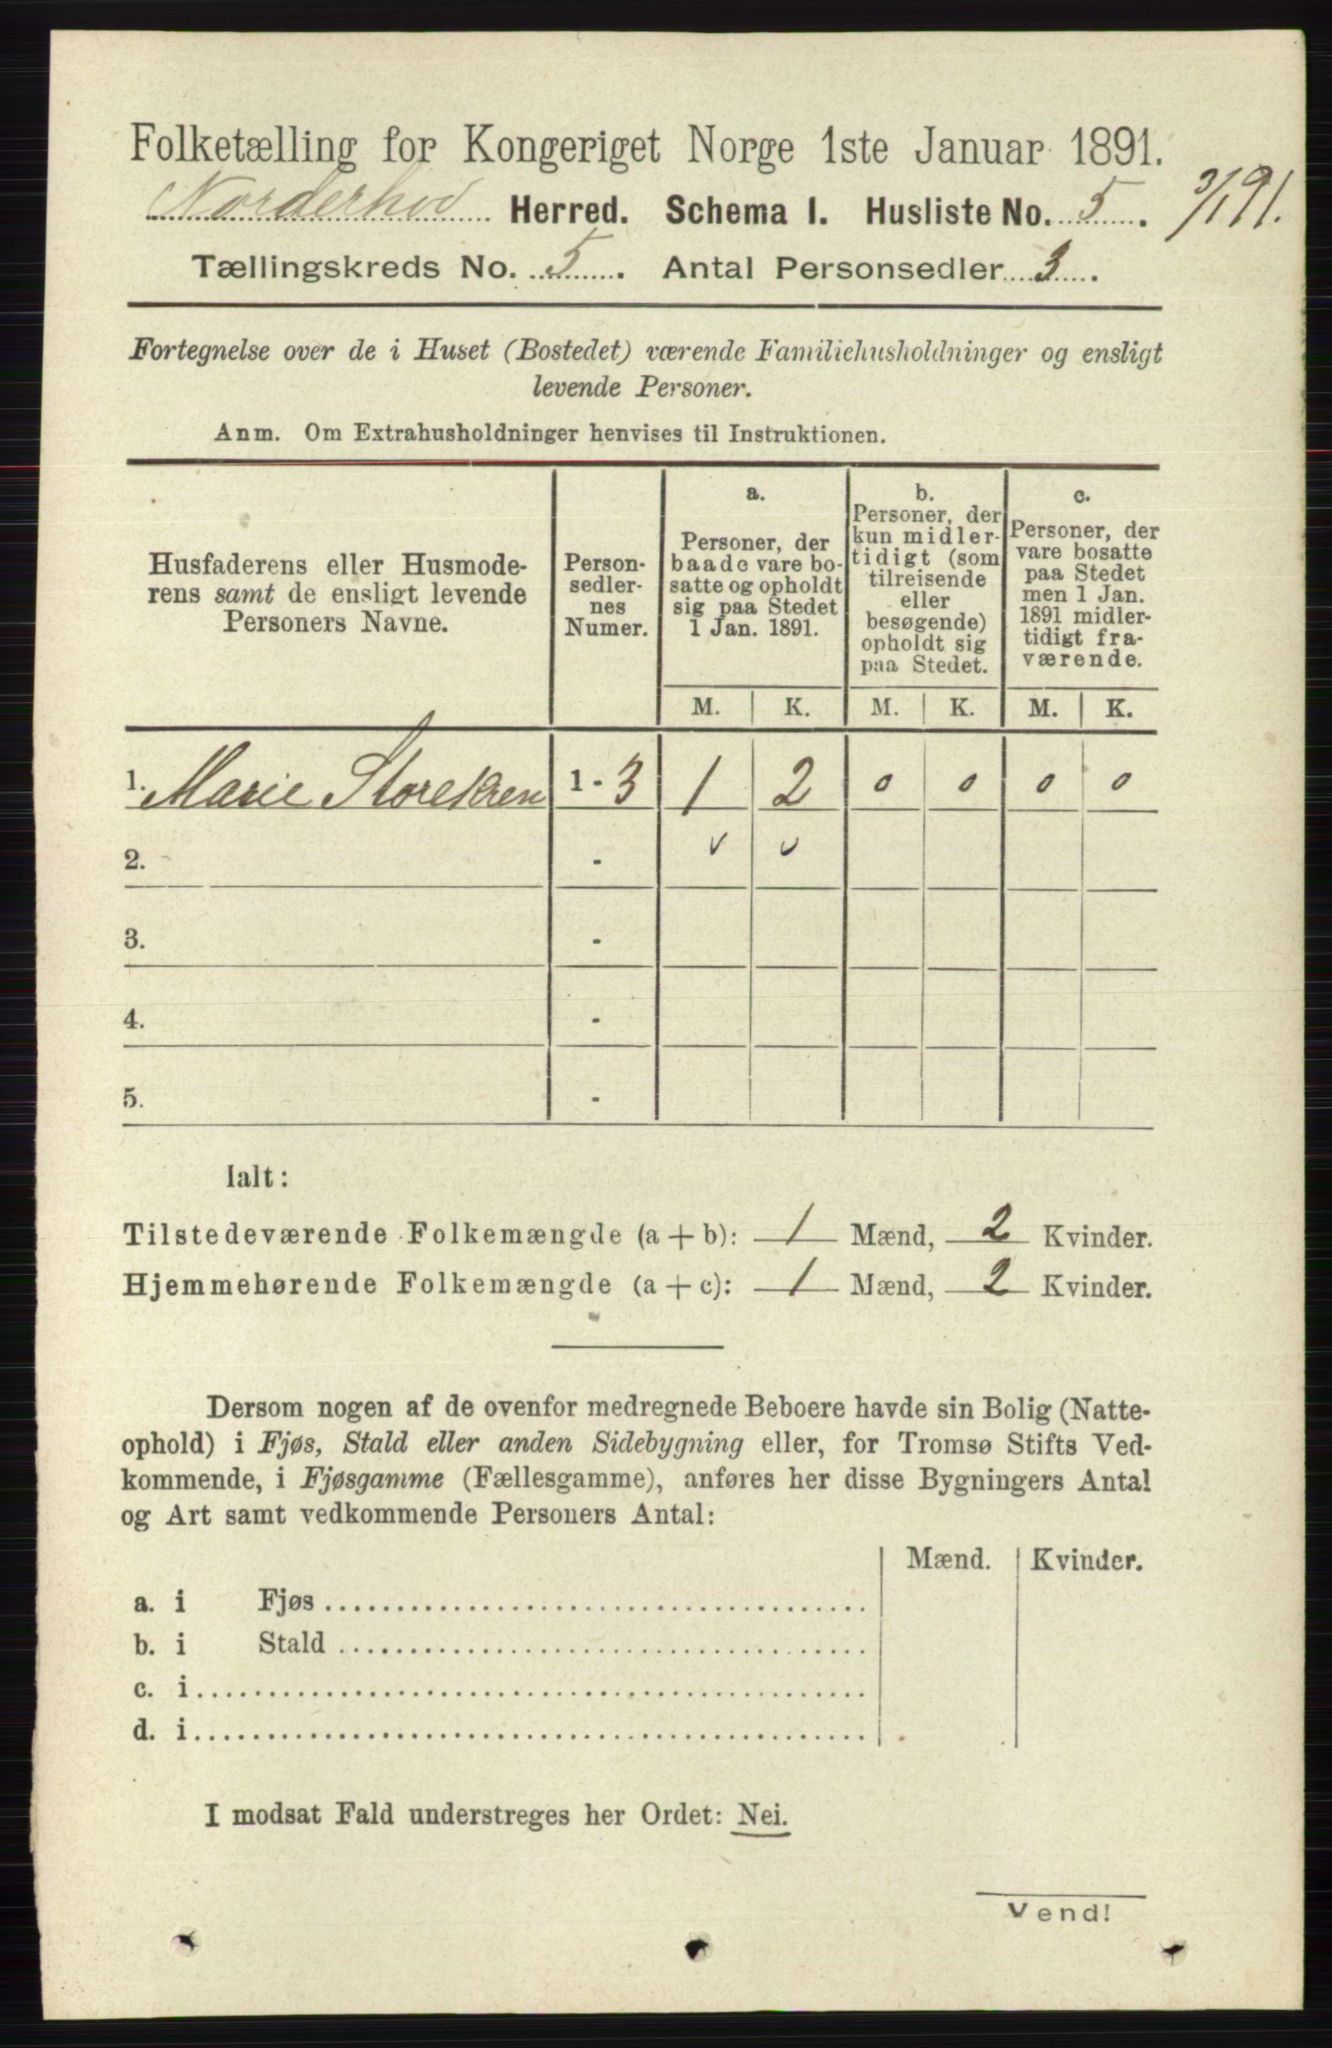 Folketælling for Kongeriget Norge 1ste Januar 1891.
Norderhov Herred. Schema I. Husliste No. 5.
Tællingskreds No. 5. Antal Personsedler 3.
Fortegnelse over de i Huset (Bostedet) værende Familiehusholdninger og ensligt
levende Personer.
Anm. Om Extrahusholdninger henvises til Instruktionen.
Husfaderens eller Husmode-
rens samt de ensligt levende
Personers Navne.
Person-
sedler-
nes
Numer.
a.
Personer, der
baade vare bo-
satte og opholdt
sig paa Stedet
1 Jan. 1891.
b.
Personer, der
kun midler-
tidigt (som
tilreisende
eller
besøgende)
opholdt sig
paa Stedet.
c.
Personer, der
vare bosatte
paa Stedet
men 1 Jan.
1891 midler-
tidigt fra-
værende.
M. K. M. K. M. K.
1. Marie 1 - 3 1 2 0 0 0 0
2. -
3. -
4. -
5. -
Ialt:
Tilstedeværende Folkemængde (a + b): 1 Mænd, 2 Kvinder.
Hjemmehørende Folkemængde (a + c): 1 Mænd, 2 Kvinder.
Dersom nogen af de ovenfor medregnede Beboere havde sin Bolig (Natte-
ophold) i Fjøs, Stald eller anden Sidebygning eller, for Tromsø Stifts Ved-
kommende, i Fjøsgamme (Fællesgamme), anføres her disse Bygningers Antal
og Art samt vedkommende Personers Antal:
Mænd. Kvinder.
a. i Fjøs
b. i Stald
c. i
d. i
I modsat Fald understreges her Ordet: Nei.
Vend!